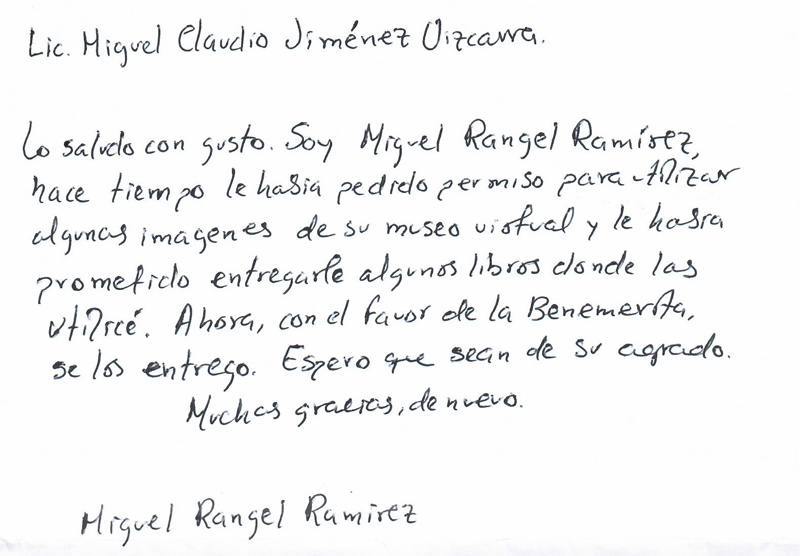 Lic. Miguel Claudio Jiménez Vizcarra.
Lo saludo con gusto. Soy Miguel Rangel Ramírez,
hace tiempo le había pedido permiso para utilizar
algunas imagenes de su museo virtual y le había
prometido entregarle algunos libros donde las
utilicé. Ahora, con el favor de la Benemerita,
se los entrego. Espero que sean de su agrado.
Muchas gracias, de nuevo.
Miguel Rangel Ramirez